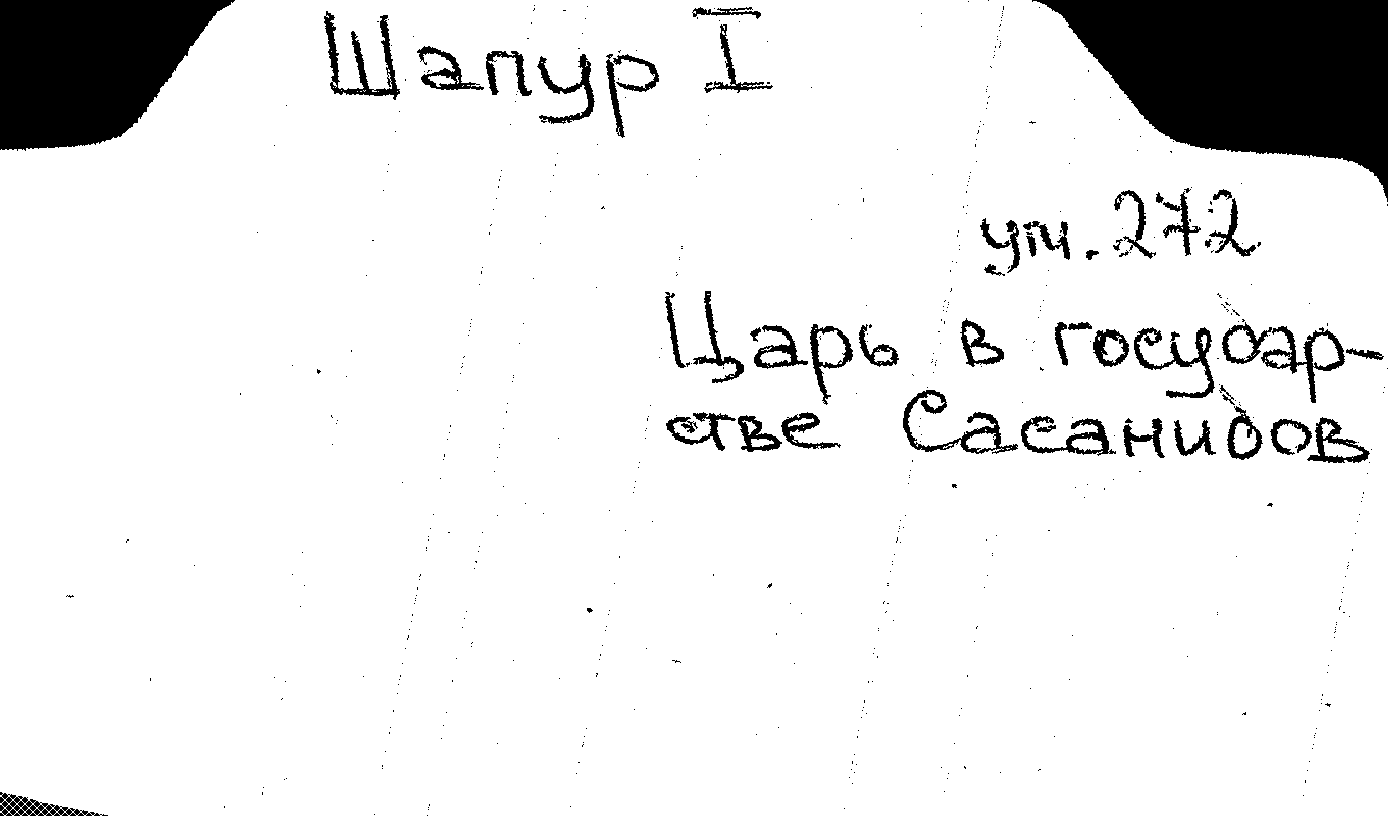 Шапур I
ум. 272
Царь в государ-
стве Сасанидов